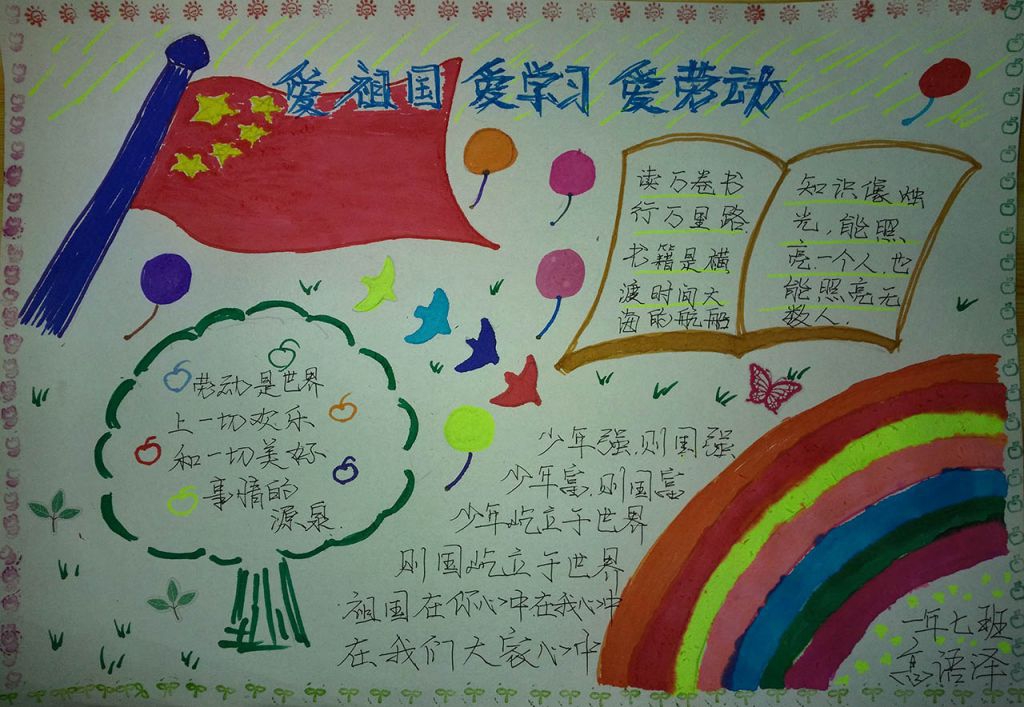 爱祖国 爱学习 爱劳动
读万卷书
行万里路
书籍是横
渡时间大
海的航船
知识像烛
光,能照
亮一个人,也
能照亮无
数人.
劳动是世界
上一切欢乐
和一切美好
事情的
源泉.
少年强,则国强
少年富,则国富
少年屹立于世界
则国屹立于世界
祖国在你心中在我心中
在我们大家心中
一年七班
高语泽